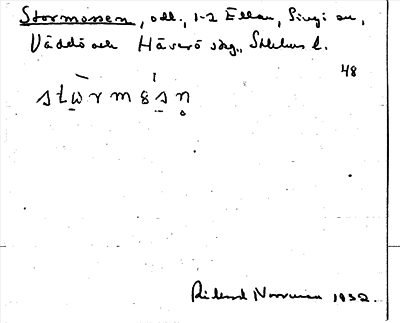 Stormossen, odl., 1-2 Ellan, Singö sn,
Väddö och Häverö sdg., Sthlms l.
48
Rikard Norrman 1932.